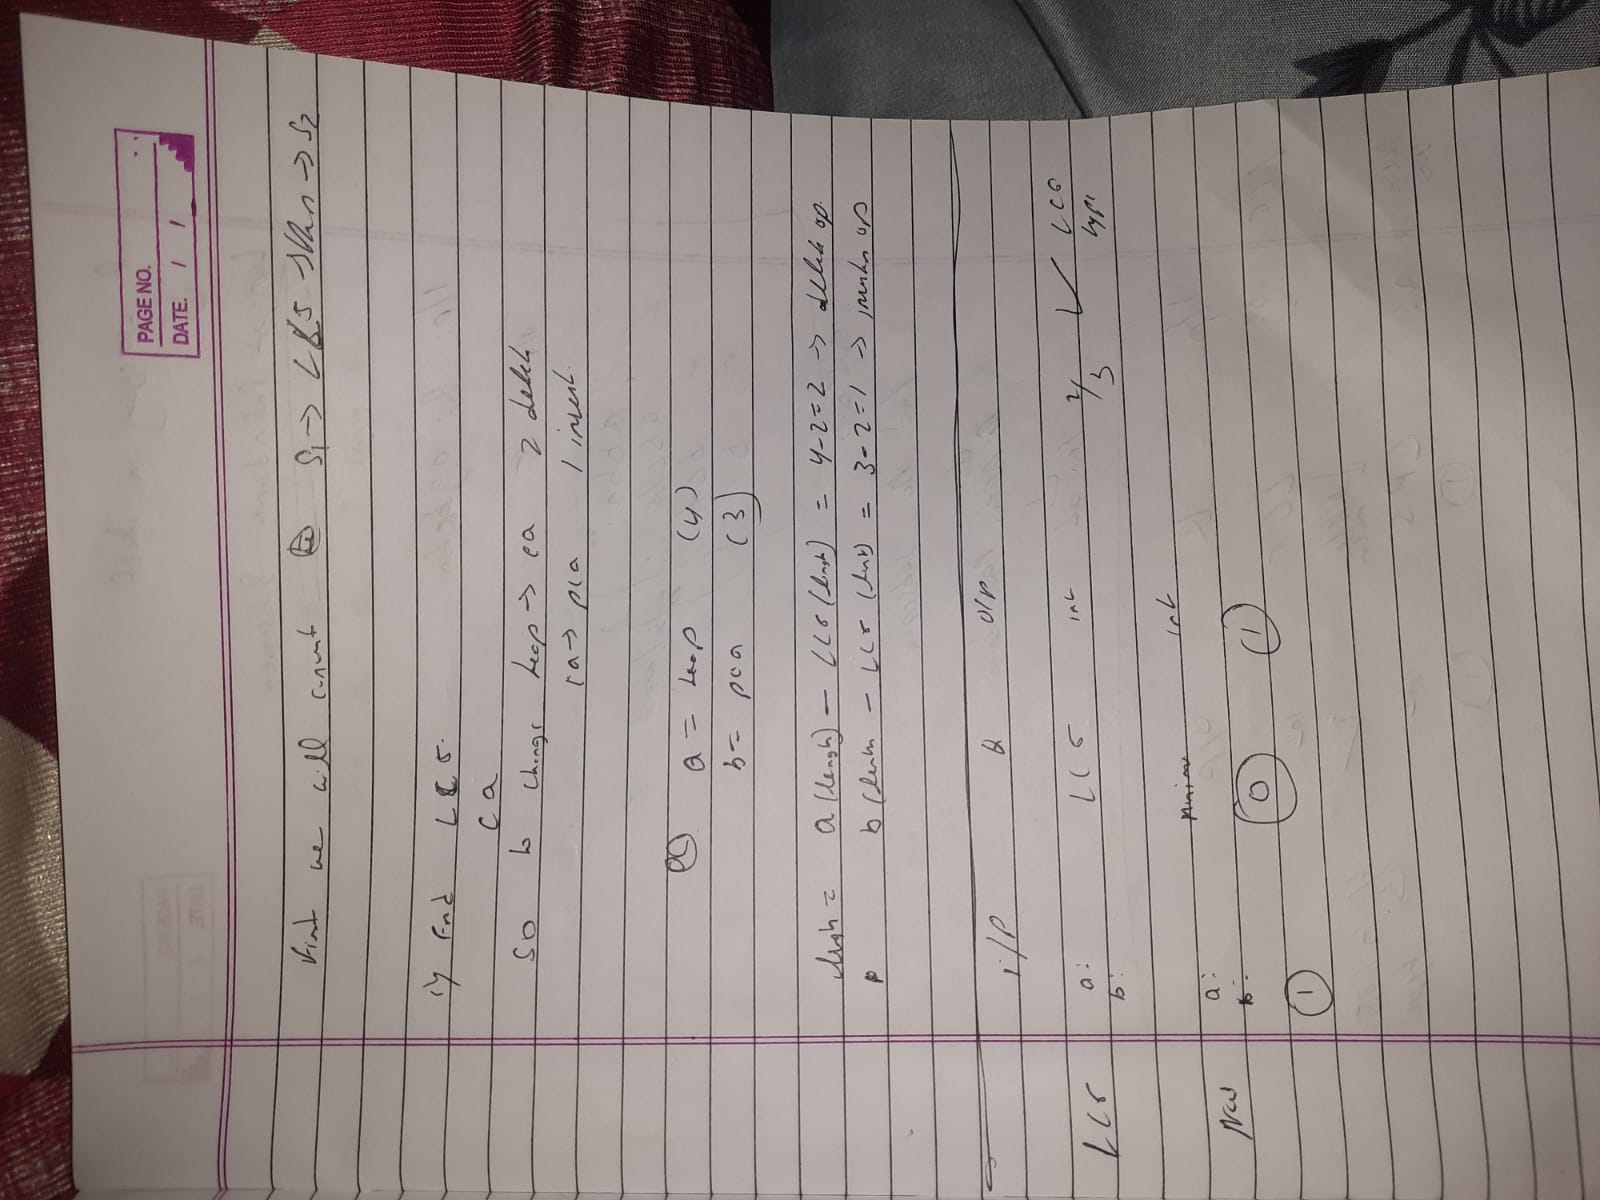 PAGE NO.
DATE. / /
First we will convert S1 → LCS then → S2
1) Find LCS.
ca
So to change heap → ea 2 delete
ca → pca 1 insert
a = heap (4)
b = pea (3)
a (length) – LCS (length) = 4-2=2 → delete op.
b (length – LCS (length) = 3-2=1 → insertion op
i/P Q O/P
LCS a: LCS int 2/3 ✓ LCS
b: type
New a: int
b:
0 1
1